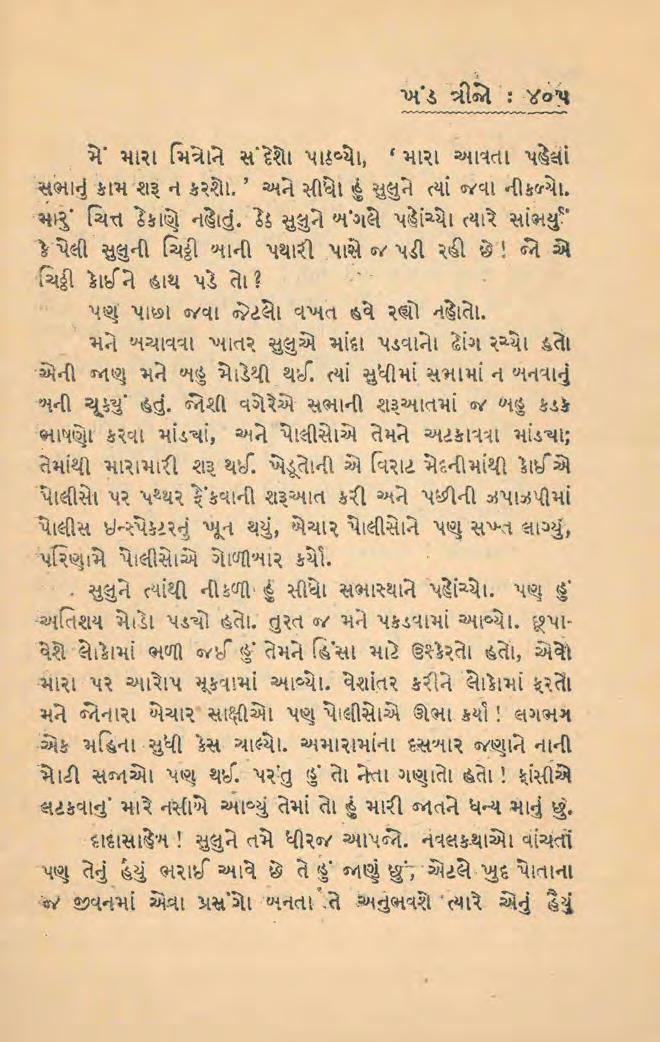 ખંડ ત્રીજો : ૪૦૫
મેં મારા મિત્રોને સંદેશો પાઠવ્યો, ‘ મારા આવતા પહેલાં
સભાનું કામ શરૂ ન કરશો. ’ અને સીધો હું સુલુને ત્યાં જવા નીકળ્યો.
મારું ચિત્ત ઠેકાણે નહોતું. ઠેઠ સુલુને બંગલે પહોંચ્યો ત્યારે સાંભર્યું
કે પેલી સુલુની ચિઠ્ઠી બાની પથારી પાસે જ પડી રહી છે ! જો એ
ચિઠ્ઠી કોઈને હાથ પડે તો ?
પણ પાછા જવા જેટલો વખત હવે રહ્યો નહોતો.
મને બચાવવા ખાતર સુલુએ માંદા પડવાનો ઢોંગ રચ્યો હતો
એની જાણ મને બહુ મોડેથી થઈ. ત્યાં સુધીમાં સભામાં ન બનવાનું
બની ચૂક્યું હતું. જોશી વગેરેએ સભાની શરૂઆતમાં જ બહુ કડક
ભાષણો કરવા માંડ્યાં, અને પોલીસોએ તેમને અટકાવવા માંડ્યા;
તેમાંથી મારામારી શરૂ થઈ. ખેડૂતોની એ વિરાટ મેદનીમાંથી કોઈએ
પોલીસો પર પથ્થર ફેંકવાની શરૂઆત કરી અને પછીની ઝપાઝપીમાં
પોલીસ ઇન્સ્પેકટરનું ખૂન થયું, બેચાર પોલીસોને પણ સખ્ત લાગ્યું,
પરિણામે પોલીસોએ ગોળીબાર કર્યો.
સુલુને ત્યાંથી નીકળી હું સીધો સભાસ્થાને પહોંચ્યો. પણ હું
અતિશય મોડો પડ્યો હતો. તુરત જ મને પકડવામાં આવ્યો. છૂપા-
વેશે લોકોમાં ભળી જઈ હું તેમને હિંસા માટે ઉશ્કેરતો હતો, એવો
મારા પર આરોપ મૂકવામાં આવ્યો. વેશાંતર કરીને લોકોમાં ફરતો
મને જોનારા બેચાર સાક્ષીઓ પણ પોલીસોએ ઊભા કર્યા ! લગભગ
એક મહિના સુધી કેસ ચાલ્યો. અમારામાંના દસબાર જણાને નાની
મોટી સજાઓ પણ થઈ. પરંતુ હું તો નેતા ગણાતો હતો ! ફાંસીએ
લટકવાનું મારે નસીબે આવ્યું તેમાં તો હું મારી જાતને ધન્ય માનું છું.
દાદાસાહેબ ! સુલુને તમે ધીરજ આપજો. નવલકથાઓ વાંચતાં
પણ તેનું હૈયું ભરાઈ આવે છે તે હું જાણું છું, એટલે ખુદ પોતાના
જ જીવનમાં એવા પ્રસંગો બનતા તે અનુભવશે ત્યારે એનું હૈયું